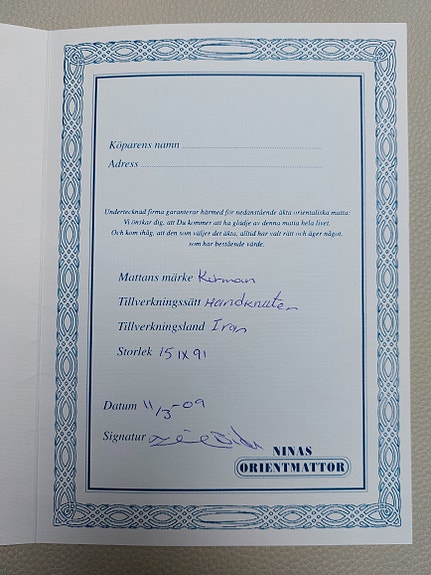 Köparens namn
Adress
Undertecknad firma garanterar härmed för nedanstående äkta orientaliska matta:
Vi önskar dig, att Du kommer att ha glädje av denna matta hela livet.
Och kom ihåg, att den som väljer det äkta, alltid har valt rätt och äger något,
som har bestående värde.
Mattans märke Kerman
Tillverkningssätt Handknuten
Tillverkningsland Iran
Storlek 151X91
Datum 11/3-09
Signatur
NINAS
ORIENTMATTOR